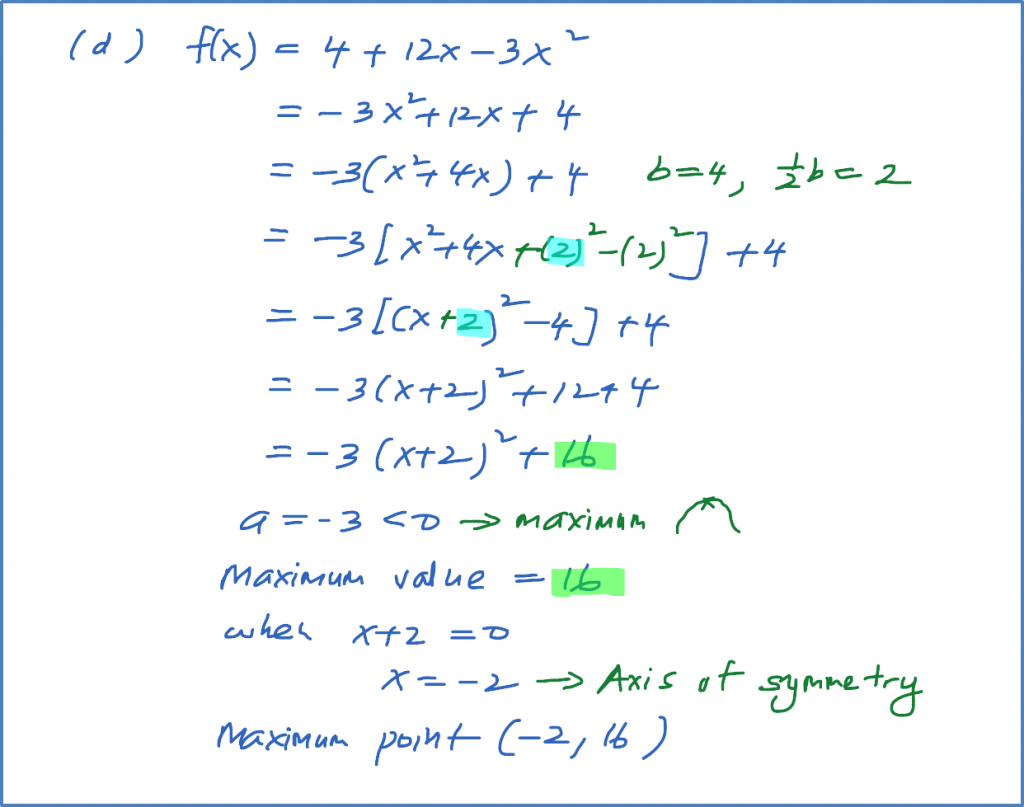 (d) f(x) = 4 + 12x - 3x²
= -3x² + 12x + 4
= -3(x² + 4x) + 4 b = 4, ½b = 2
= -3[x² + 4x + (2)² - (2)²] + 4
= -3[(x + 2)² - 4] + 4
= -3(x+2)² + 12 + 4
= -3(x+2)² + 16
a = -3 < 0 → maximum
Maximum value = 16
when x+2 = 0
x = -2 → Axis of symmetry
Maximum point (-2, 16)